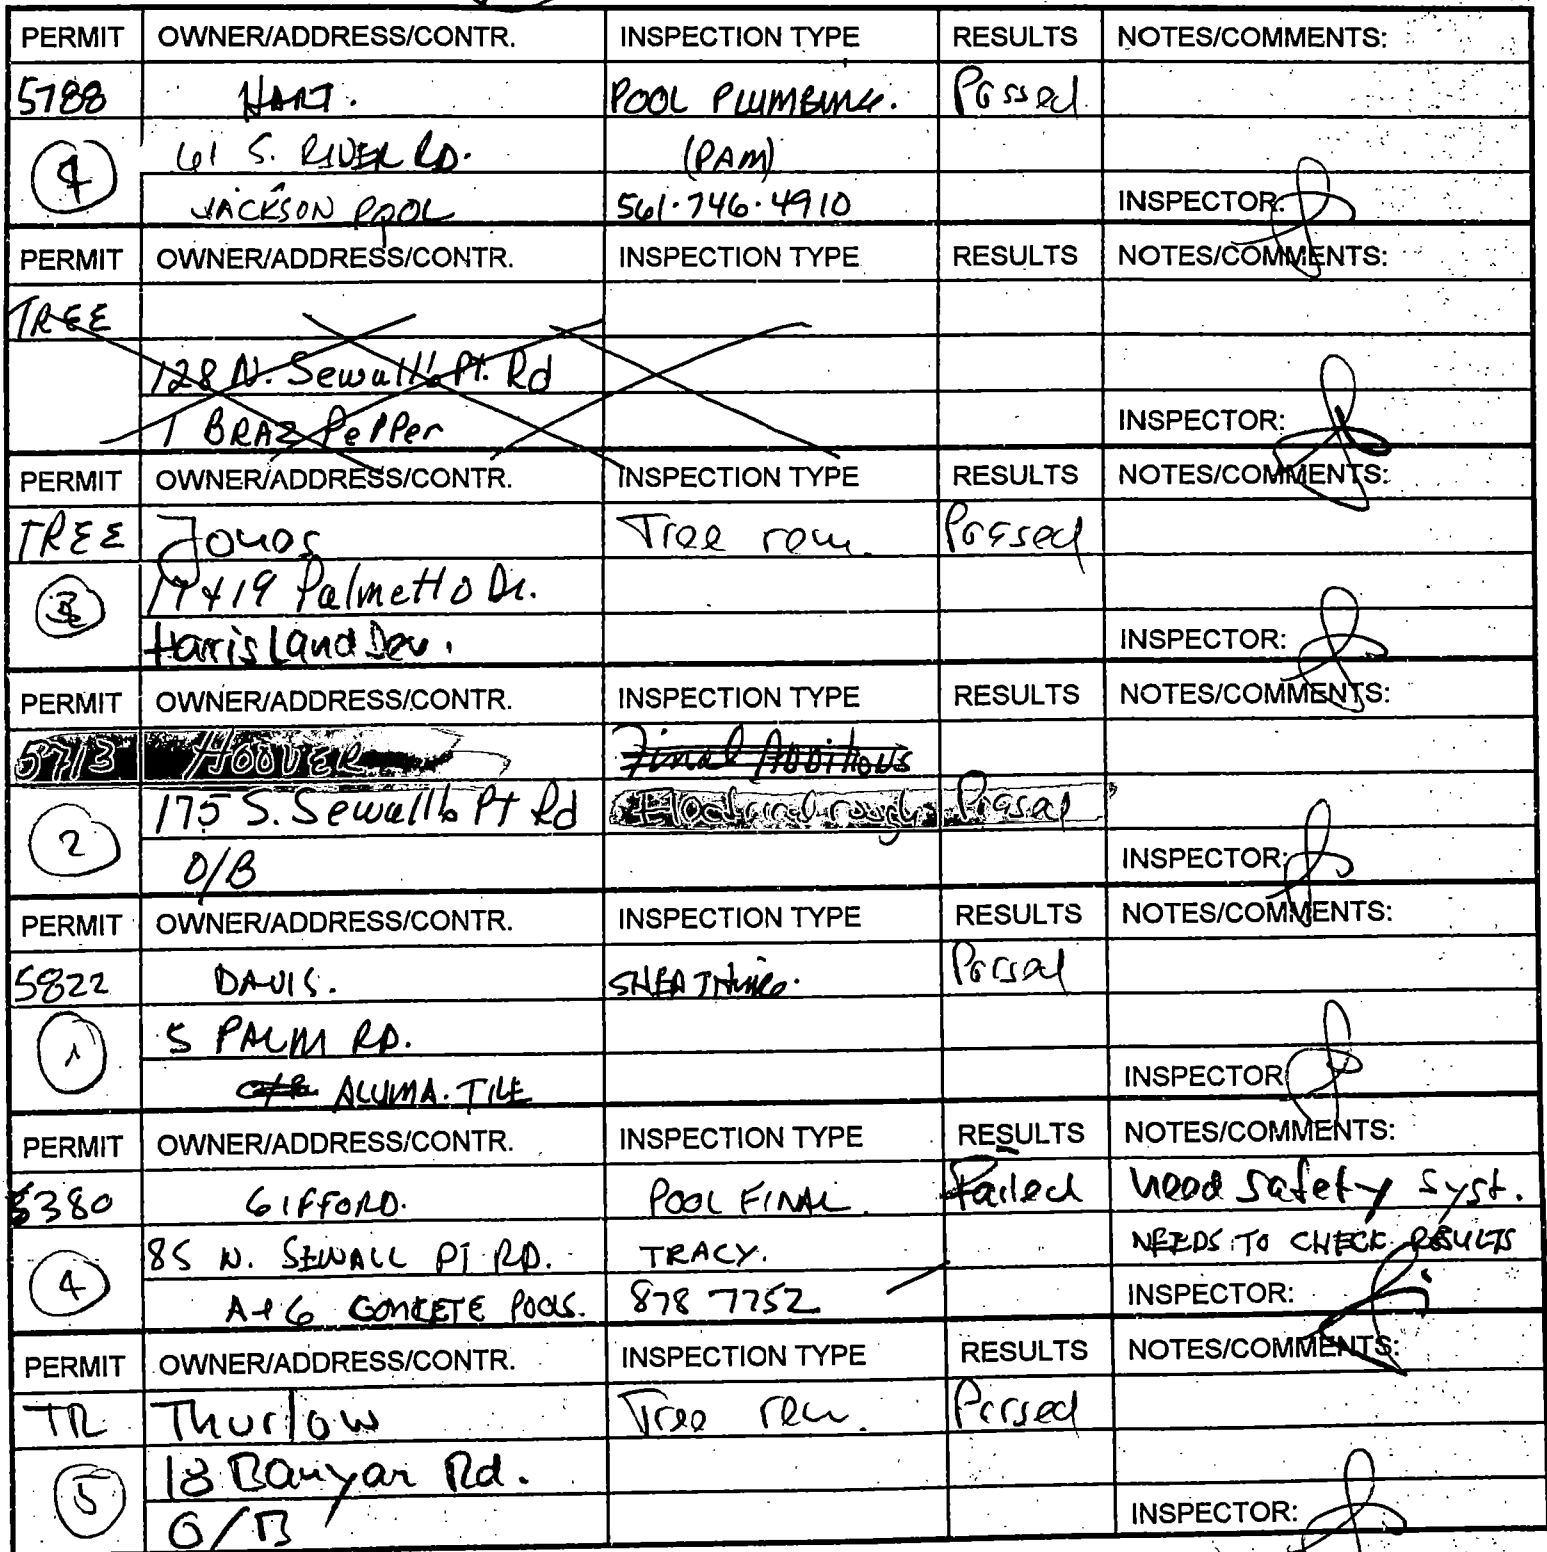 PERMIT OWNER/ADDRESS/CONTR. INSPECTION TYPE RESULTS NOTES/COMMENTS:
5788 HART. POOL PLUMBING. Passed
61 S. RIVER RD. (PAM)
JACKSON POOL 561·746·4910 INSPECTOR:
PERMIT OWNER/ADDRESS/CONTR. INSPECTION TYPE RESULTS NOTES/COMMENTS:
TREE
128 N. Sewall's Pt. Rd
1 BRAZ Pepper INSPECTOR:
PERMIT OWNER/ADDRESS/CONTR. INSPECTION TYPE RESULTS NOTES/COMMENTS:
TREE Jones Tree rem. Passed
17+19 Palmetto Dr.
Harris Land Dev. INSPECTOR:
PERMIT OWNER/ADDRESS/CONTR. INSPECTION TYPE RESULTS NOTES/COMMENTS:
5713 HOOVER Final Additions
2 175 S. Sewall's Pt Rd Electrical rough Passed
O/B INSPECTOR:
PERMIT OWNER/ADDRESS/CONTR. INSPECTION TYPE RESULTS NOTES/COMMENTS:
5822 DAVIS. SHEATHING. Passed
1 5 PALM RD.
O/B ALUMA. TILE INSPECTOR
PERMIT OWNER/ADDRESS/CONTR. INSPECTION TYPE RESULTS NOTES/COMMENTS:
5380 GIFFORD. POOL FINAL. Failed need safety syst.
4 85 N. SEWALL PT RD. TRACY. NEEDS TO CHECK RESULTS
A+G CONCRETE POOLS. 878 7752 INSPECTOR:
PERMIT OWNER/ADDRESS/CONTR. INSPECTION TYPE RESULTS NOTES/COMMENTS:
TR Thurlow Tree rem. Passed
5 18 Banyan Rd.
O/B INSPECTOR: